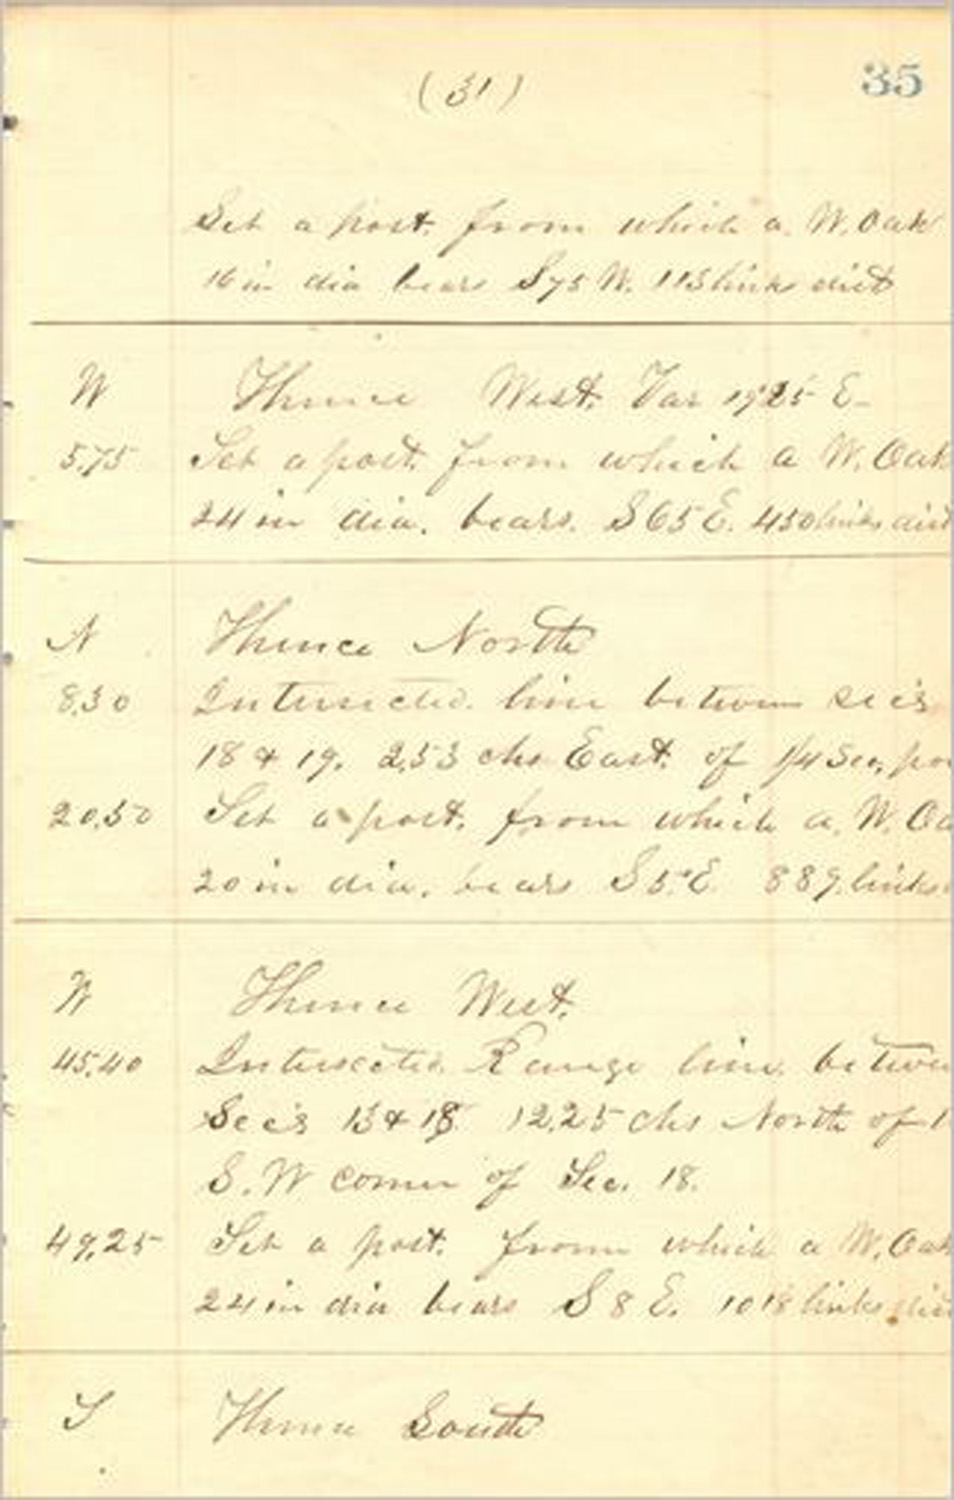 (31) 35
Set a post. from which a W. Oak
16 in dia bears S 75 W. 113 links dist
W Thence West. Var 19°25 E-
5,75 Set a post. from which a W. Oak
24 in dia. bears. S 65 E. 450 links dist
N Thence North
8,30 Intersected line between sec's
18 & 19. 2,53 chs East. of 1/4 Sec, po
20,50 Set a post. from which a W. Oa
20 in dia. bears S 5° E 889 links
W Thence West.
45,40 Intersected Range line betwe
Sec's 13 & 18 12,25 chs North of
S. W corner of Sec. 18.
49,25 Set a post. from which a W. Oak
24 in dia bears S 8 E. 1018 links dis
S Thence South